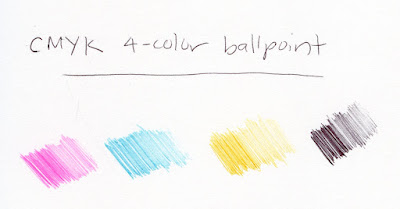 CMYK 4-color ballpoint